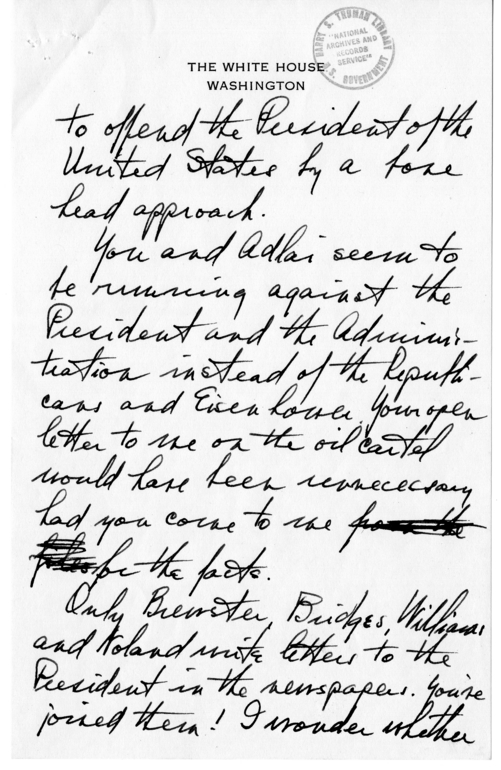 HARRY S. TRUMAN LIBRARY
"NATIONAL
ARCHIVES AND
RECORDS
SERVICE"
U.S. GOVERNMENT
THE WHITE HOUSE
WASHINGTON
to offend the President of the
United States by a bone
head approach.
You and Adlai seem to
be running against the
President and the Adminis-
tration instead of the Republi-
cans and Eisenhower. Your open
letter to me on the oil cartel
would have been unnecessary
had you come to me from the
files for the facts.
Only Brewster, Bridges, Williams
and Noland write letters to the
President in the newspapers. You've
joined them! I wonder whether